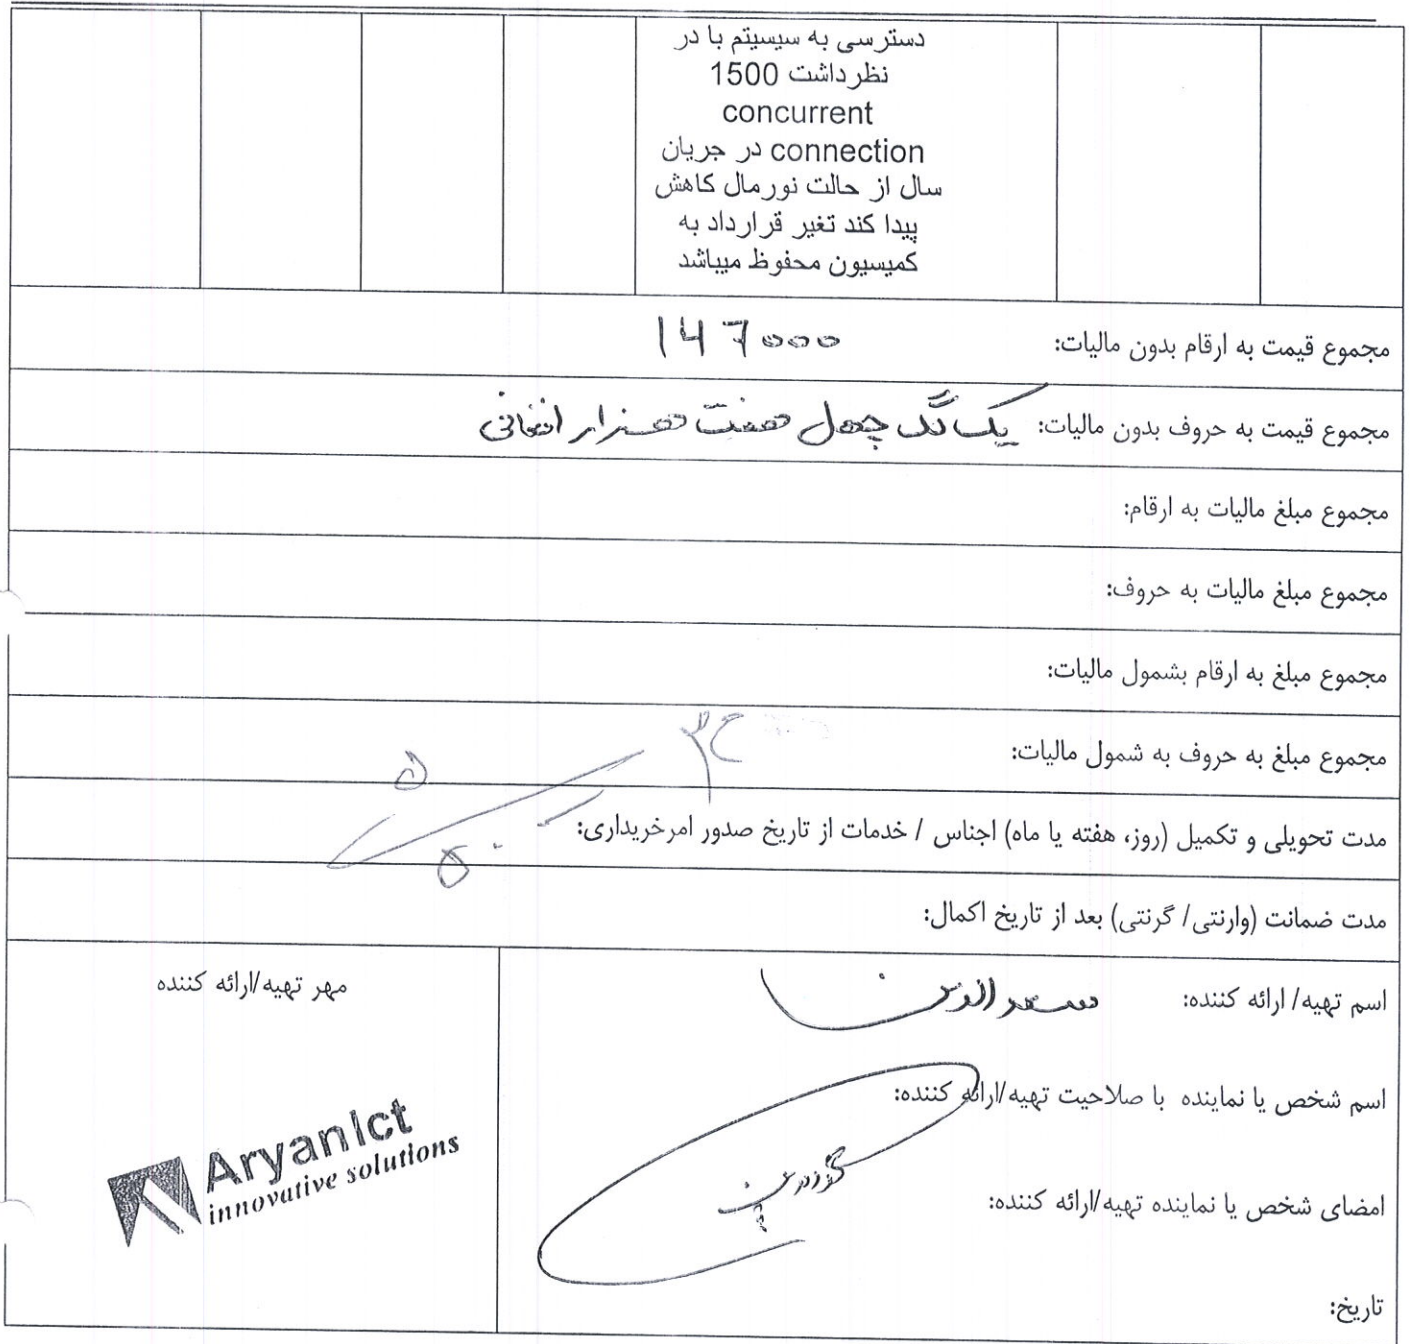 دسترسی به سیسیتم با در
نظرداشت 1500
concurrent
connection در جریان
سال از حالت نورمال کاهش
پیدا کند تغیر قرارداد به
کمیسیون محفوظ میباشد
مجموع قیمت به ارقام بدون مالیات: 147000
مجموع قیمت به حروف بدون مالیات: یک لک چهل هفت هزار افغانی
مجموع مبلغ مالیات به ارقام:
مجموع مبلغ مالیات به حروف:
مجموع مبلغ به ارقام بشمول مالیات:
مجموع مبلغ به حروف به شمول مالیات:
مدت تحویلی و تکمیل (روز، هفته یا ماه) اجناس / خدمات از تاریخ صدور امرخریداری:
مدت ضمانت (وارنتی/ گرنتی) بعد از تاریخ اکمال:
اسم تهیه/ ارائه کننده: سعدالدین
اسم شخص یا نماینده با صلاحیت تهیه/ارائه کننده:
امضای شخص یا نماینده تهیه/ارائه کننده:
تاریخ:
مهر تهیه/ارائه کننده
AryanIct
innovative solutions